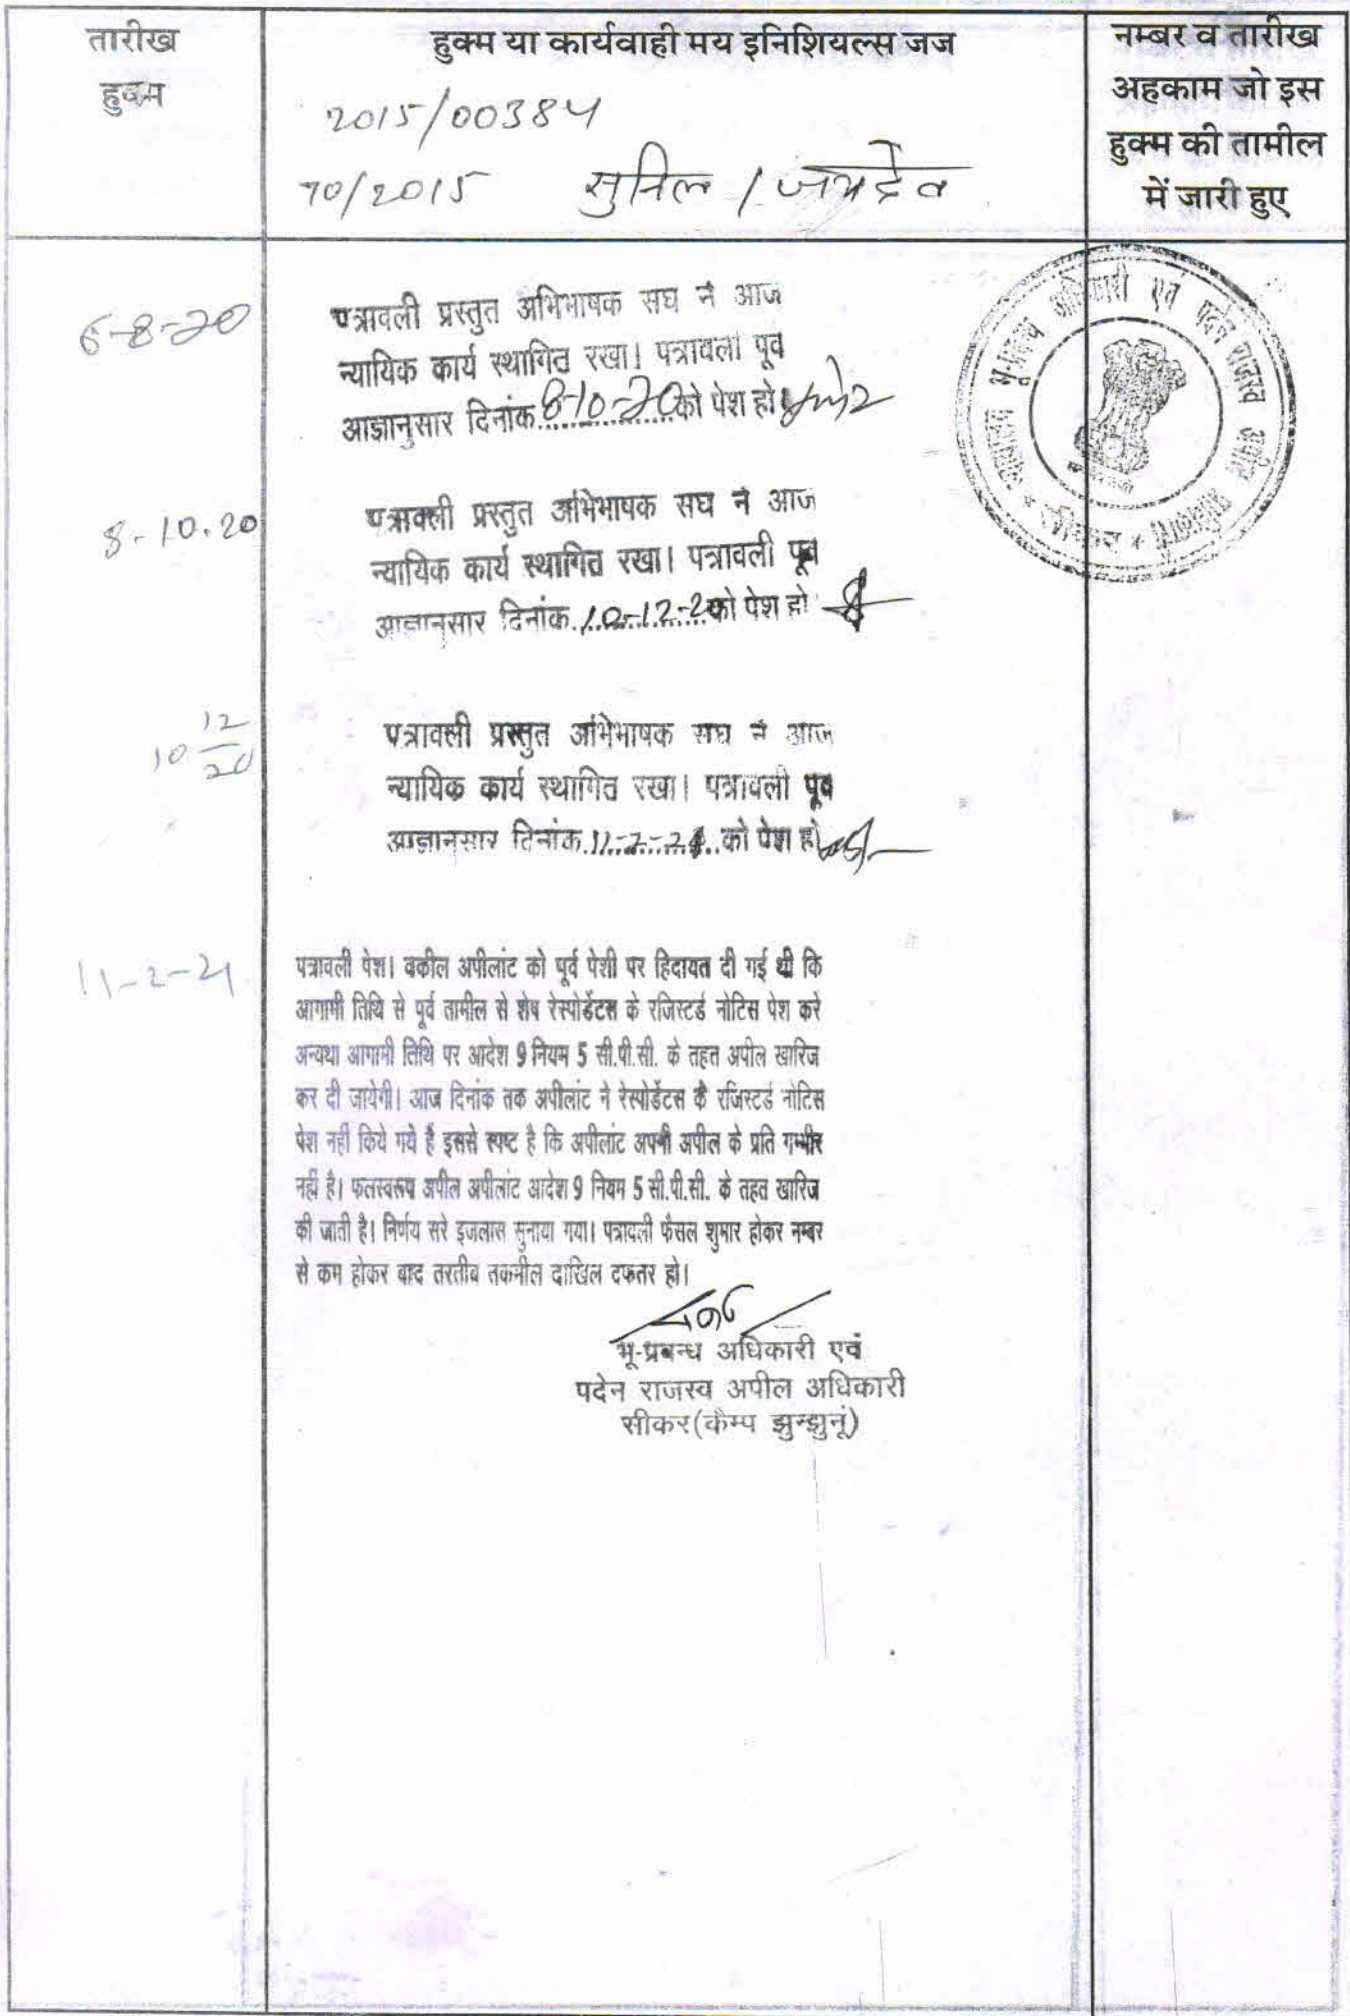 तारीख
हुक्म
हुक्म या कार्यवाही मय इनिशियल्स जज
2015/00384
70/2015 सुनिल / जयदेव
नम्बर व तारीख
अहकाम जो इस
हुक्म की तामील
में जारी हुए
6-8-20
पत्रावली प्रस्तुत अभिभाषक सघ ने आज
न्यायिक कार्य स्थागित रखा। पत्रावली पूव
आज्ञानुसार दिनांक 8-10-20 को पेश हो
भू-प्रबन्ध अधिकारी एवं पदेन राजस्व अपील अधिकारी
8-10.20
पत्रावली प्रस्तुत अभिभाषक सघ ने आज
न्यायिक कार्य स्थागित रखा। पत्रावली पूव
आज्ञानुसार दिनांक 10-12-20 को पेश हो
10 12/20
पत्रावली प्रस्तुत अभिभाषक सघ ने आज
न्यायिक कार्य स्थागित रखा। पत्रावली पूव
आज्ञानुसार दिनांक 11-2-21 को पेश हो
11-2-21
पत्रावली पेश। वकील अपीलांट को पूर्व पेशी पर हिदायत दी गई थी कि
आगामी तिथि से पूर्व तामील से शेष रेस्पोडेंटस के रजिस्टर्ड नोटिस पेश करे
अन्यथा आगामी तिथि पर आदेश 9 नियम 5 सी.पी.सी. के तहत अपील खारिज
कर दी जायेगी। आज दिनांक तक अपीलांट ने रेस्पोडेंटस के रजिस्टर्ड नोटिस
पेश नही किये गये है इससे स्पष्ट है कि अपीलांट अपनी अपील के प्रति गम्भीर
नही है। फलस्वरूप अपील अपीलांट आदेश 9 नियम 5 सी.पी.सी. के तहत खारिज
की जाती है। निर्णय सरे इजलास सुनाया गया। पत्रावली फैसल शुमार होकर नम्बर
से कम होकर बाद तरतीब तकमील दाखिल दफतर हो।
भू-प्रबन्ध अधिकारी एवं
पदेन राजस्व अपील अधिकारी
सीकर(कैम्प झुन्झुनूं)